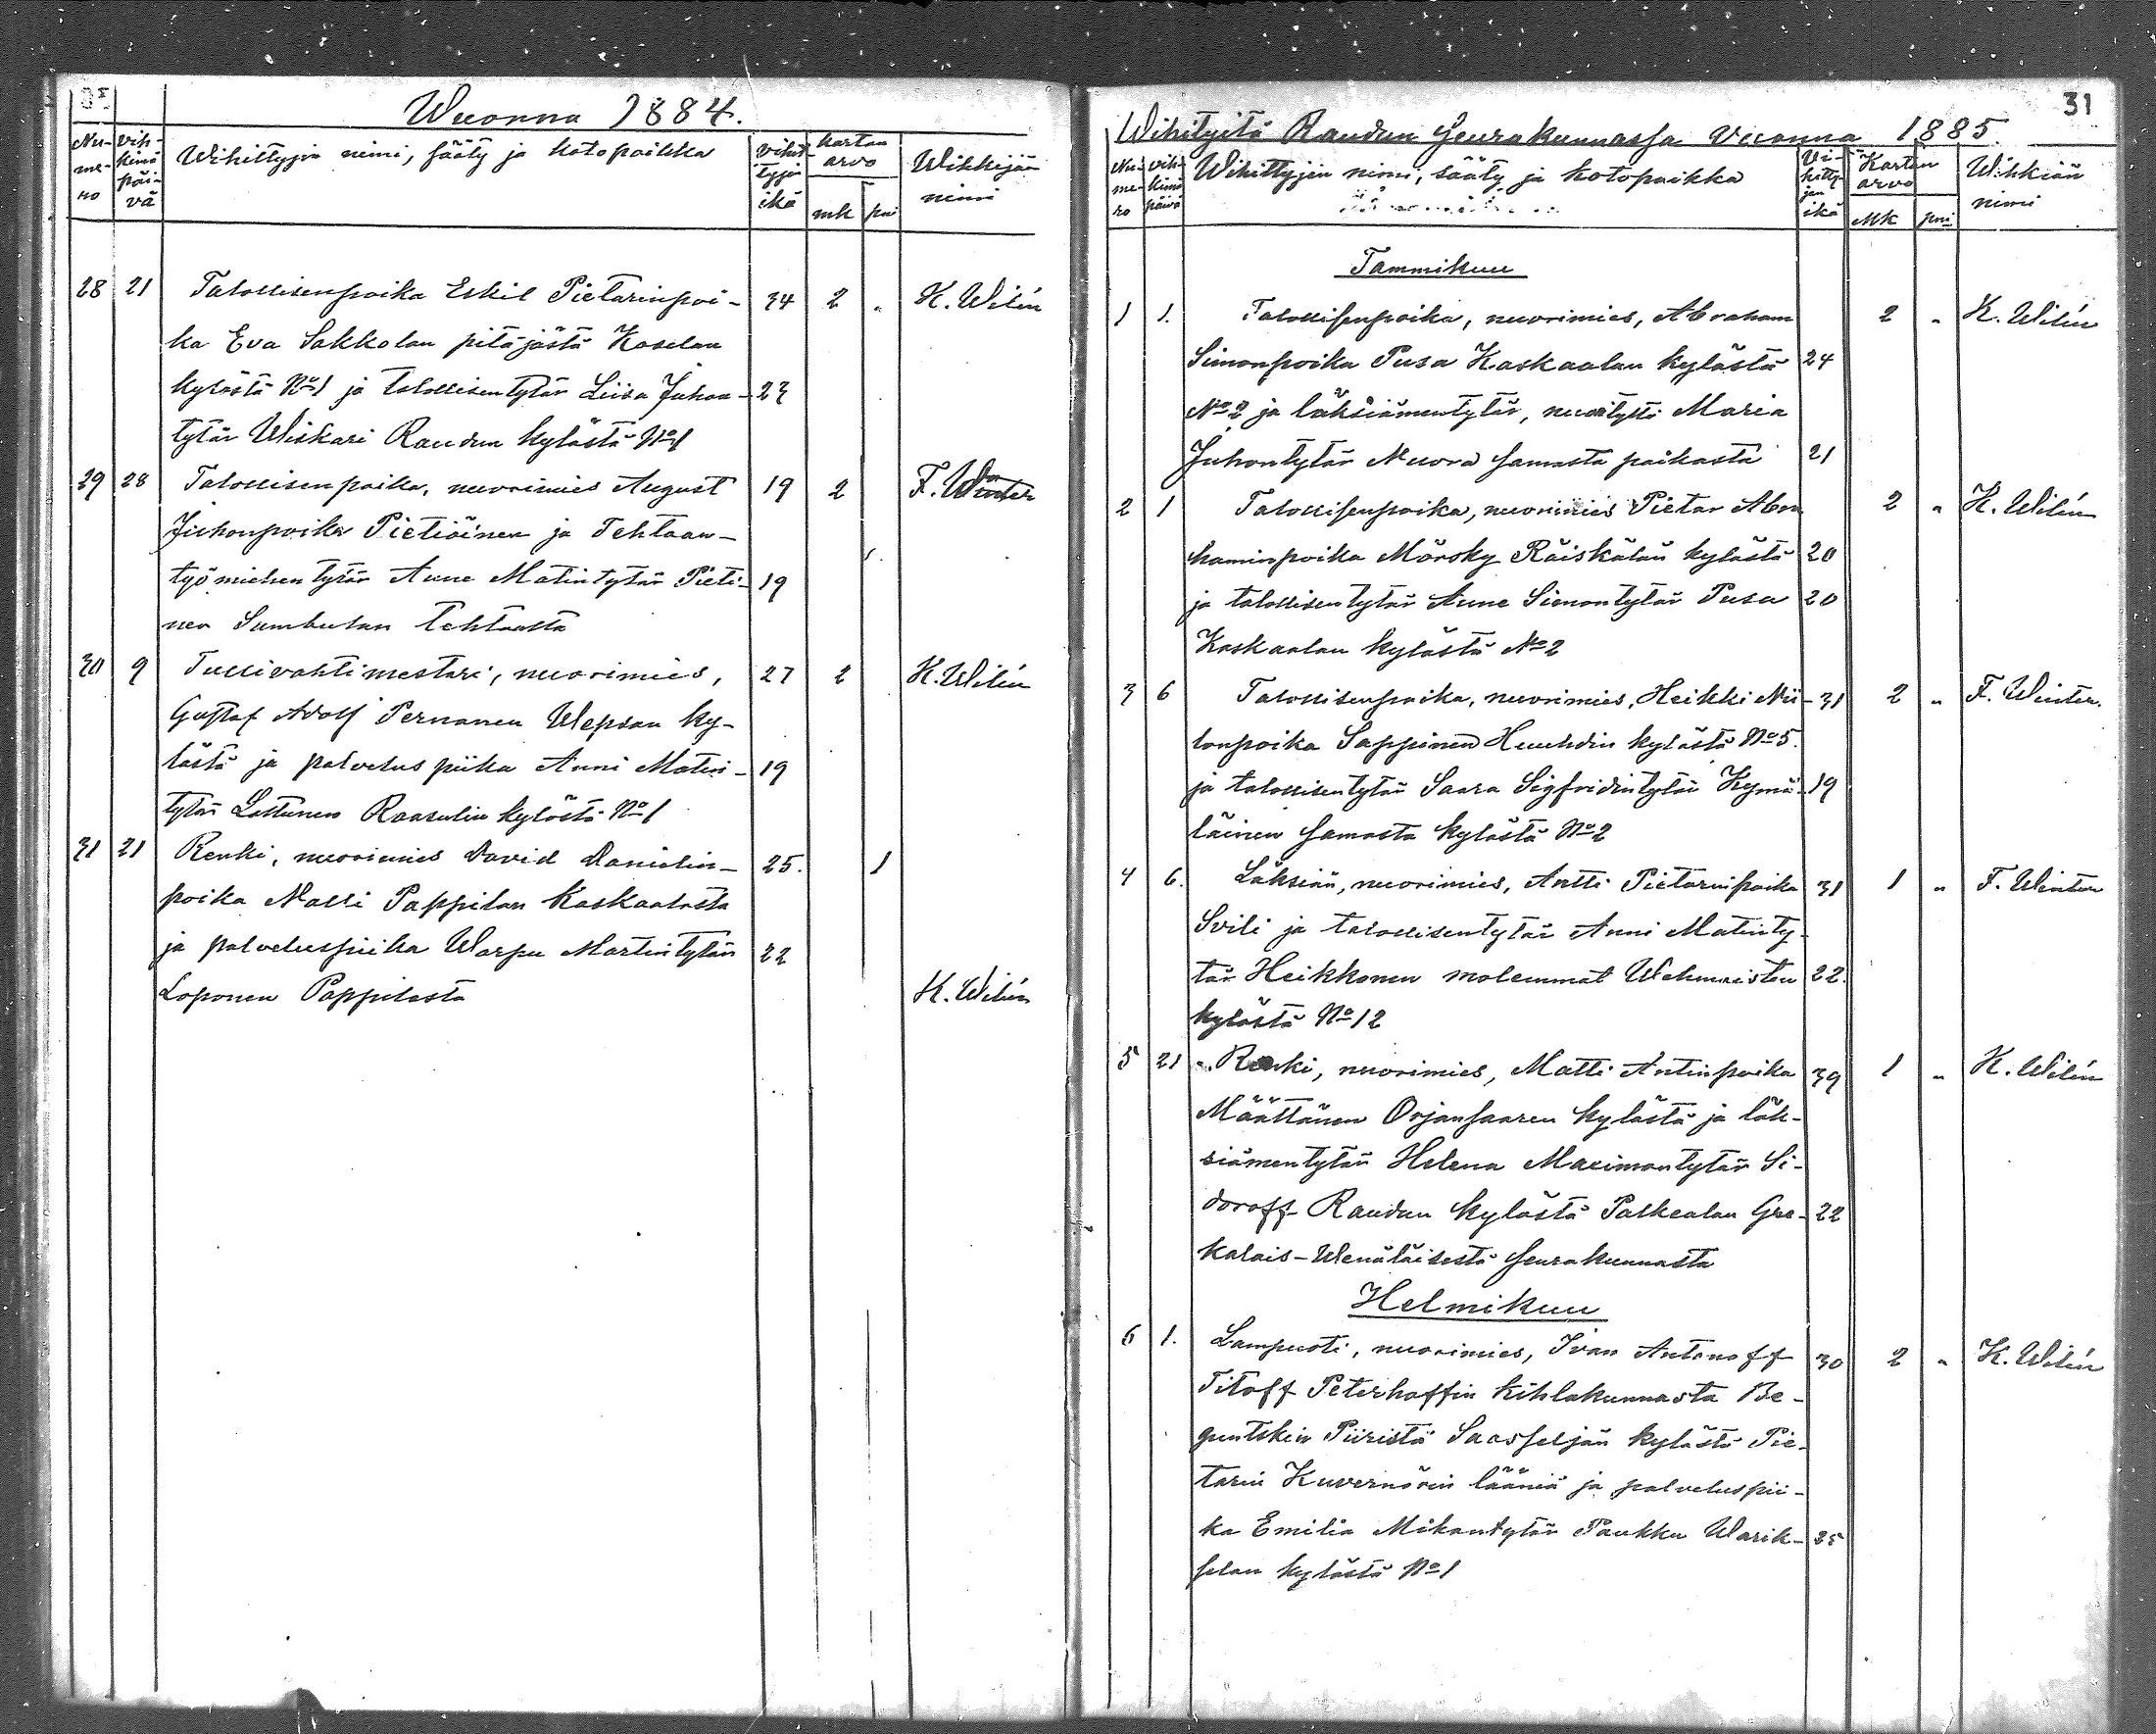 Wuonna 1884.
Nu- me- ro
Vih- kimä päi- vä
Wihittyjin nimi, sääty ja kotopaikka
Vihit- tyjän ikä
kartan arvo
mk pni
Wihkijän nimi
28 21 Talollisenpoika Eskil Pietarinpoi- 34 2 „ K. Wilén
ka Eva Sakkolan pitäjästä Koselan
kylästä No 1 ja talollisentytär Liisa Juhon- 23
tytär Wiskari Raudun kylästä No 1
29 28 Talollisenpoika, nuorimies August 19 2 F. Winter
Juhonpoika Pietiäinen ja Tehtaan-
työmiehen tytär Anne Matintytär Pieti- 19
nen Sumbulan Tehtaasta
30 9 Tullivahtimestari, nuorimies, 27 2 K. Wilén
Gustaf Adolf Pernanen Wepsan ky-
lästä ja palveluspiika Anni Matin- 19
tytär Lattunen Raasulin kylästä No 1
31 21 Renki, nuorimies David Danielin- 25. 1
poika Nalli Pappilan Kaskaalasta
ja palveluspiika Warpu Martintytär 22
Loponen Pappilasta K. Wilén
31
Wihityitä Raudun Seurakunnassa Vuonna 1885.
Nu- me- ro
vih- kimä päivä
Wihittyjin nimi, sääty ja kotopaikka
Vi- hitty- jen ikä
Kartan arvo
Mk pni
Wihkiän nimi
Tammikuu
1 1. Talollisenpoika, nuorimies, Abraham 2 „ K. Wilén
Simonpoika Pusa Kaskaalan kylästä 24
No 2 ja läksiämentytär, nuorityttö Maria
Juhontytär Nuora samasta paikasta 21
2 1 Talollisenpoika, nuorimies Pietar Abra 2 „ K. Wilén
haminpoika Mörsky Räiskälän kylästä 20
ja talollisentytär Anne Simontytär Pusa 20
Kaskaalan kylästä No 2
3 6 Talollisenpoika, nuorimies, Heikki Nii- 31 2 „ F. Winter.
lonpoika Sappinen Huuhdin kylästä No 5.
ja talollisentytär Saara Sigfridintytär Kymä- 19
läinen samasta kylästä No 2
4 6. Läksiän, nuorimies, Antti Pietarinpoika 31 1 „ F. Winter
Svili ja talollisentytär Anni Matinty-
tär Heikkonen molemmat Wehmaisten 22.
kylästä No 12
5 21 Renki, nuorimies, Matti Antinpoika 39 1 „ K. Wilén
Määttänen Orjansaaren kylästä ja läk-
siämentytär Helena Maximontytär Si-
doroff Raudun kylästä Palkealan Gre- 22
kalais-Wenäläisestä seurakunnasta
Helmikuu
6 1. Lampuoti, nuorimies, Ivan Antonoff 30 2 „ K. Wilén
Titoff Peterhoffin kihlakunnasta Be-
guntskin Piiristä Saasseljän kylästä Pie-
tarin Kuvernörin lääniä ja palveluspii-
ka Emilia Mikontytär Paukku Warik- 25
selan kylästä No 1